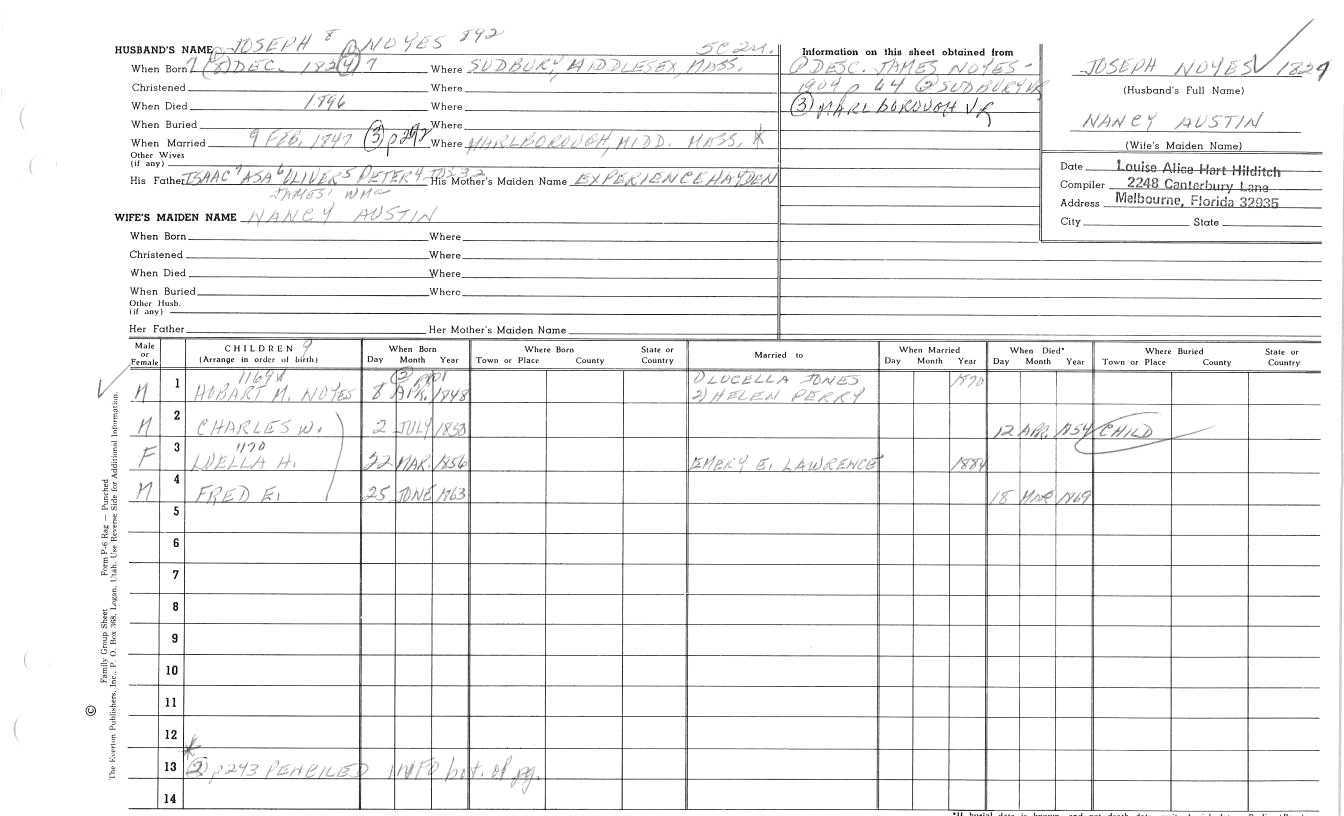 HUSBAND'S NAME JOSEPH 8 NOYES 892
When Born 7 (8) DEC. 182(4) 7 Where SUDBURY, MIDDLESEX, MASS.
Christened Where
When Died 1896 Where
When Buried Where
When Married 9 FEB. 1847 (3) p292 Where MARLBOROUGH, MIDD. MASS. *
Other Wives
(if any)
His Father ISAAC 7 ASA 6 OLIVER 5 PETER 4 His Mother's Maiden Name EXPERIENCE HAYDEN
JAMES
WIFE'S MAIDEN NAME NANCY AUSTIN
When Born Where
Christened Where
When Died Where
When Buried Where
Other Husb.
(if any)
Her Father Her Mother's Maiden Name
Information on this sheet obtained from
(1) DESC. JAMES NOYES -
1904 p 64 (2) SUDBURY VR
(3) MARLBOROUGH VR
JOSEPH NOYES 1824
(Husband's Full Name)
NANCY AUSTIN
(Wife's Maiden Name)
Date Louise Alice Hart Hilditch
Compiler 2248 Canterbury Lane
Address Melbourne, Florida 32935
City State
Male or Female CHILDREN 9 (Arrange in order of birth) When Born Day Month Year Where Born Town or Place County State or Country Married to When Married Day Month Year When Died* Day Month Year Where Buried Town or Place County State or Country
1169
M 1 HOBART M. NOYES 8 APR. 1848 1) LUCELLA JONES 1870
2) HELEN PERRY
M 2 CHARLES W. 2 JULY 1853 12 APR. 1854 CHILD
1170
F 3 LUELLA H. 22 MAR. 1856 EMERY E. LAWRENCE 1884
M 4 FRED E. 25 JUNE 1863 18 MAR 1869
5
6
7
8
9
10
11
12
*
13 (2) p243 PENCILED INFO bot. of pg.
14
Family Group Sheet Form P-6 Rag — Punched
© The Everton Publishers, Inc., P. O. Box 368, Logan, Utah. Use Reverse Side for Additional Information.